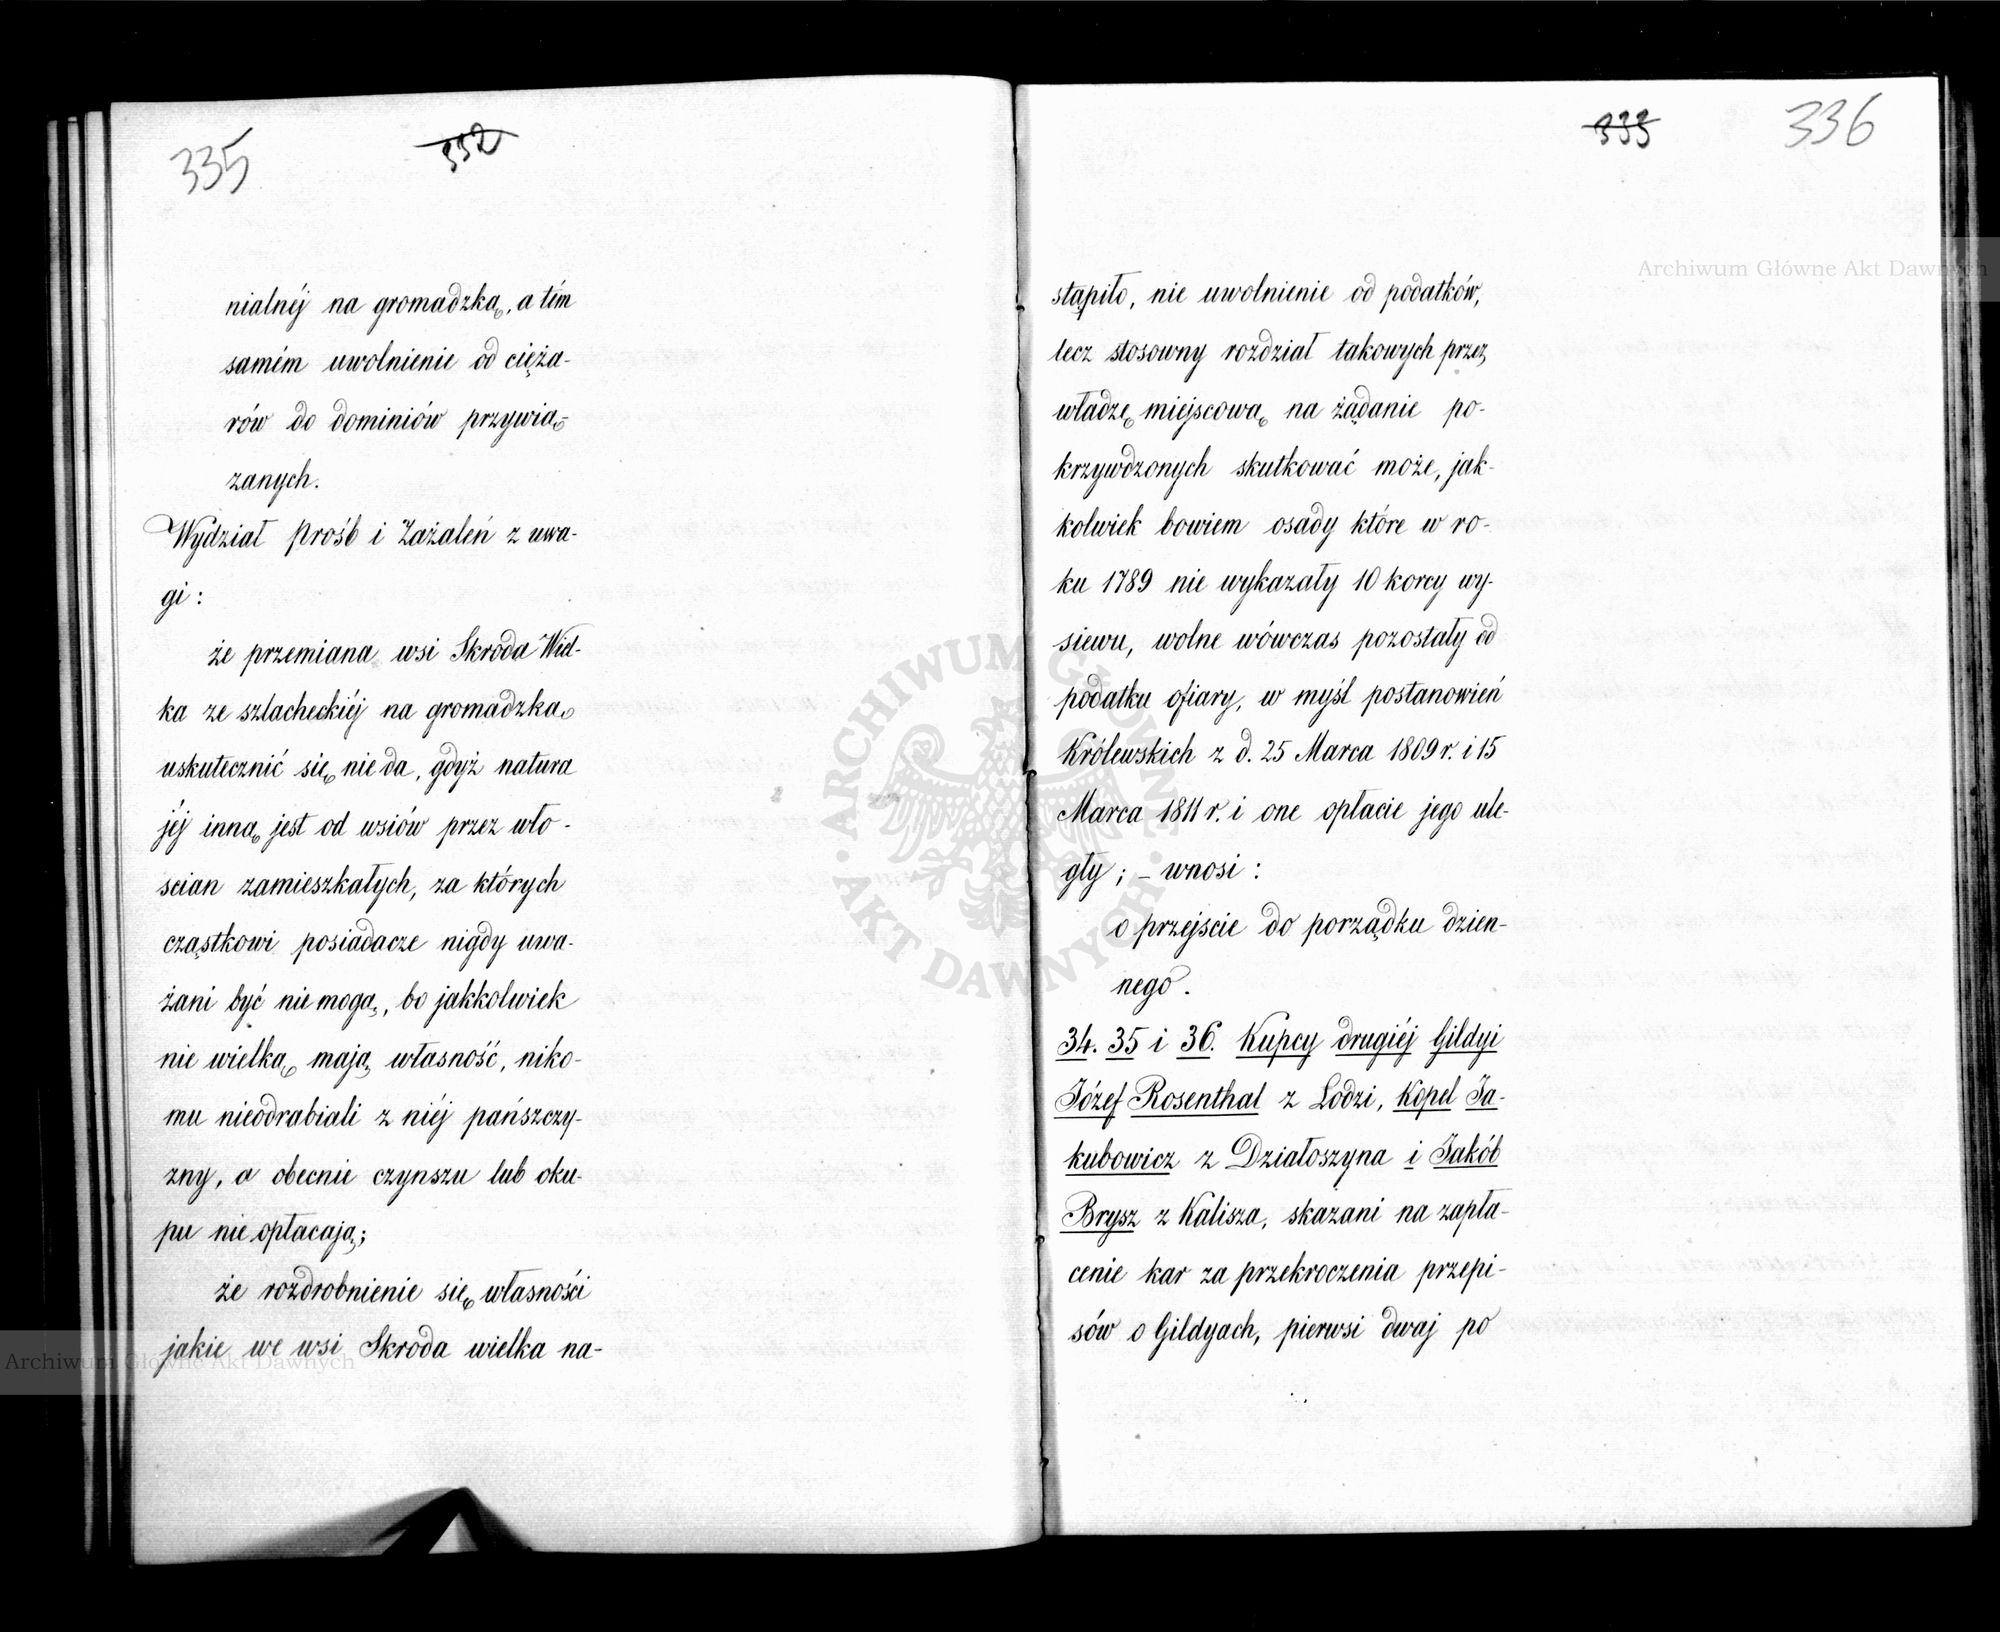 335
332
nialnéj na gromadzką, a tém
samém uwolnienie od cięża-
rów do dominiów przywią-
zanych.
Wydział Prośb i Zażaleń z uwa-
gi:
że przemiana wsi Skroda Wid-
ka ze szlacheckiéj na gromadzką
uskutecznić się nie da, gdyż natura
jéj inną jest od wsiów przez wło-
scian zamieszkałych, za których
cząstkowi posiadacze nigdy uwa-
żani być nie mogą, bo jakkolwiek
nie wielką mają własność, niko-
mu nieodrabiali z niéj pańszczy-
zny, a obecnie czynszu lub oku-
pu nie opłacają;
że rozdrobnienie się własności
jakie we wsi Skroda wielka na-
333
336
stąpiło, nie uwolnienie od podatków,
lecz stosowny rozdział takowych przez
władzę miejscową na żądanie po-
krzywdzonych skutkować może, jak-
kolwiek bowiem osady które w ro-
ku 1789 nie wykazały 10 korcy wy-
siewu, wolne wówczas pozostały od
podatku ofiary, w myśl postanowień
Królewskich z d. 25 Marca 1809 r. i 15
Marca 1811 r. i one opłacie jego ule-
gły; – wnosi:
o przejście do porządku dzien-
nego.
34. 35 i 36. Kupcy drugiéj Gildyi
Józef Rosenthal z Lodzi, Kopel Ja-
kubowicz z Działoszyna i Jakób
Brysz z Kalisza, skazani na zapła-
cenie kar za przekroczenia przepi-
sów o Gildyach, pierwsi dwaj po
Archiwum Główne Akt Dawnych
Archiwum Główne Akt Dawnych
ARCHIWUM GŁÓWNE AKT DAWNYCH